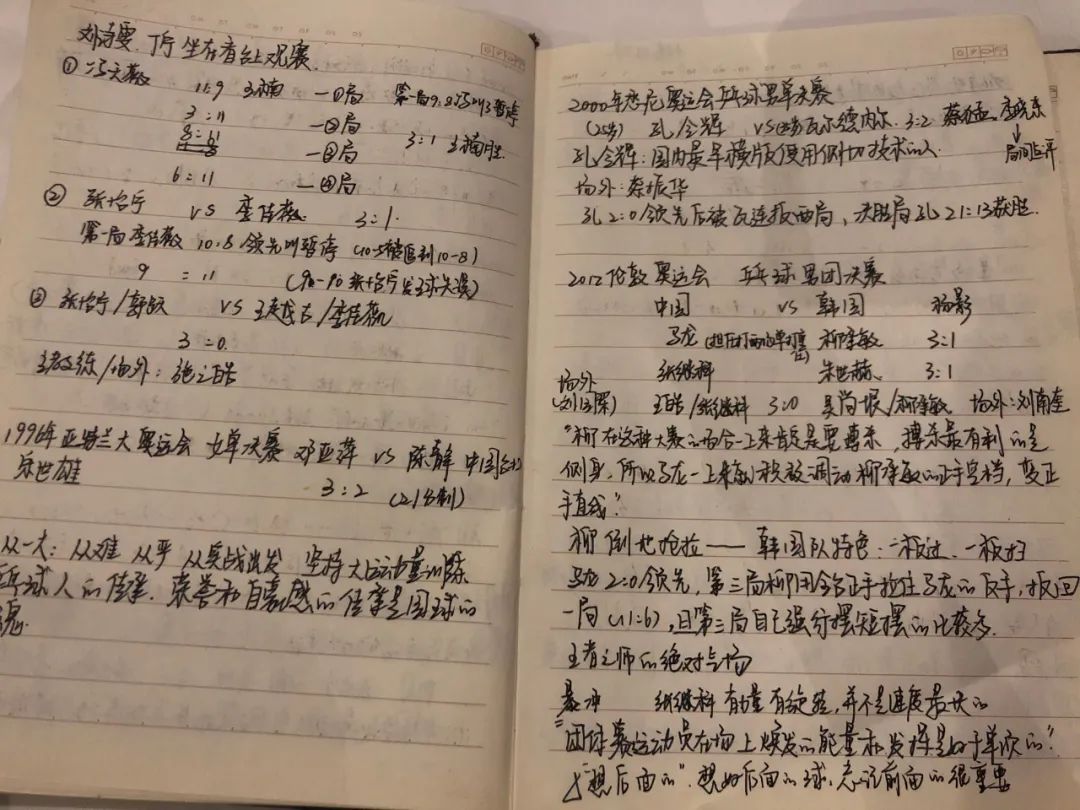 刘诗雯、丁宁坐在看台上观赛.
① 冯天薇 11:9 王楠 一①局 第一局9:8冯叫了暂停
3:11 一②局
一③局 3:1 王楠胜.
6:11 一④局
② 张怡宁 vs 李佳薇 3:1.
第一局李佳薇 10:8 领先叫暂停 (10-5被追到10-8)
9 = 11 (9-10 张怡宁发球失误)
③ 张怡宁/郭跃 vs 王越古/李佳薇
3:0.
主教练/场外: 施之皓
1996年亚特兰大奥运会 女单决赛 邓亚萍 vs 陈静 中国台北
宋世雄 3:2 (21分制)
从一大: 从难 从严 从实战出发 坚持大运动量训练
乒球人的传承. 荣誉和自豪感的传承是国球的
魂.
2000年悉尼奥运会乒乓球男单决赛
(25岁) 孔令辉 vs 瓦尔德内尔. 3:2 蔡猛、
孔令辉: 国内最早横板使用侧切技术的人. 局间召开
场外: 蔡振华
孔2:0领先后被瓦连扳两局, 决胜局孔21:13获胜.
2012伦敦奥运会 乒乓球男团决赛
中国 vs 韩国 杨影
马龙 柳承敏 3:1
张继科 朱世赫 3:1
场外(刘国梁) 王皓/张继科 3:0 吴尚垠/柳承敏 场外: 刘南奎
"柳在这种大赛的场合一上来肯定是要搏杀, 搏杀最有利的是
侧身, 所以马龙一上来就积极调动柳承敏的正手空档, 变正
手直线."
柳 倒地抢拉 —— 韩国队特色: 二板过、一板扫
马龙2:0领先, 第三局柳用全台正手拉住马龙的反手, 扳回
一局 (11:6), 且第三局自己强行摆短摆的比较多.
王者之师的绝对气场
暴冲 张继科 有力量有旋转, 并不是速度最快的
"团体赛运动员在场上焕发的能量和发挥是好于单项的".
"想后面的". 想好后面的球, 忘记前面的很重要